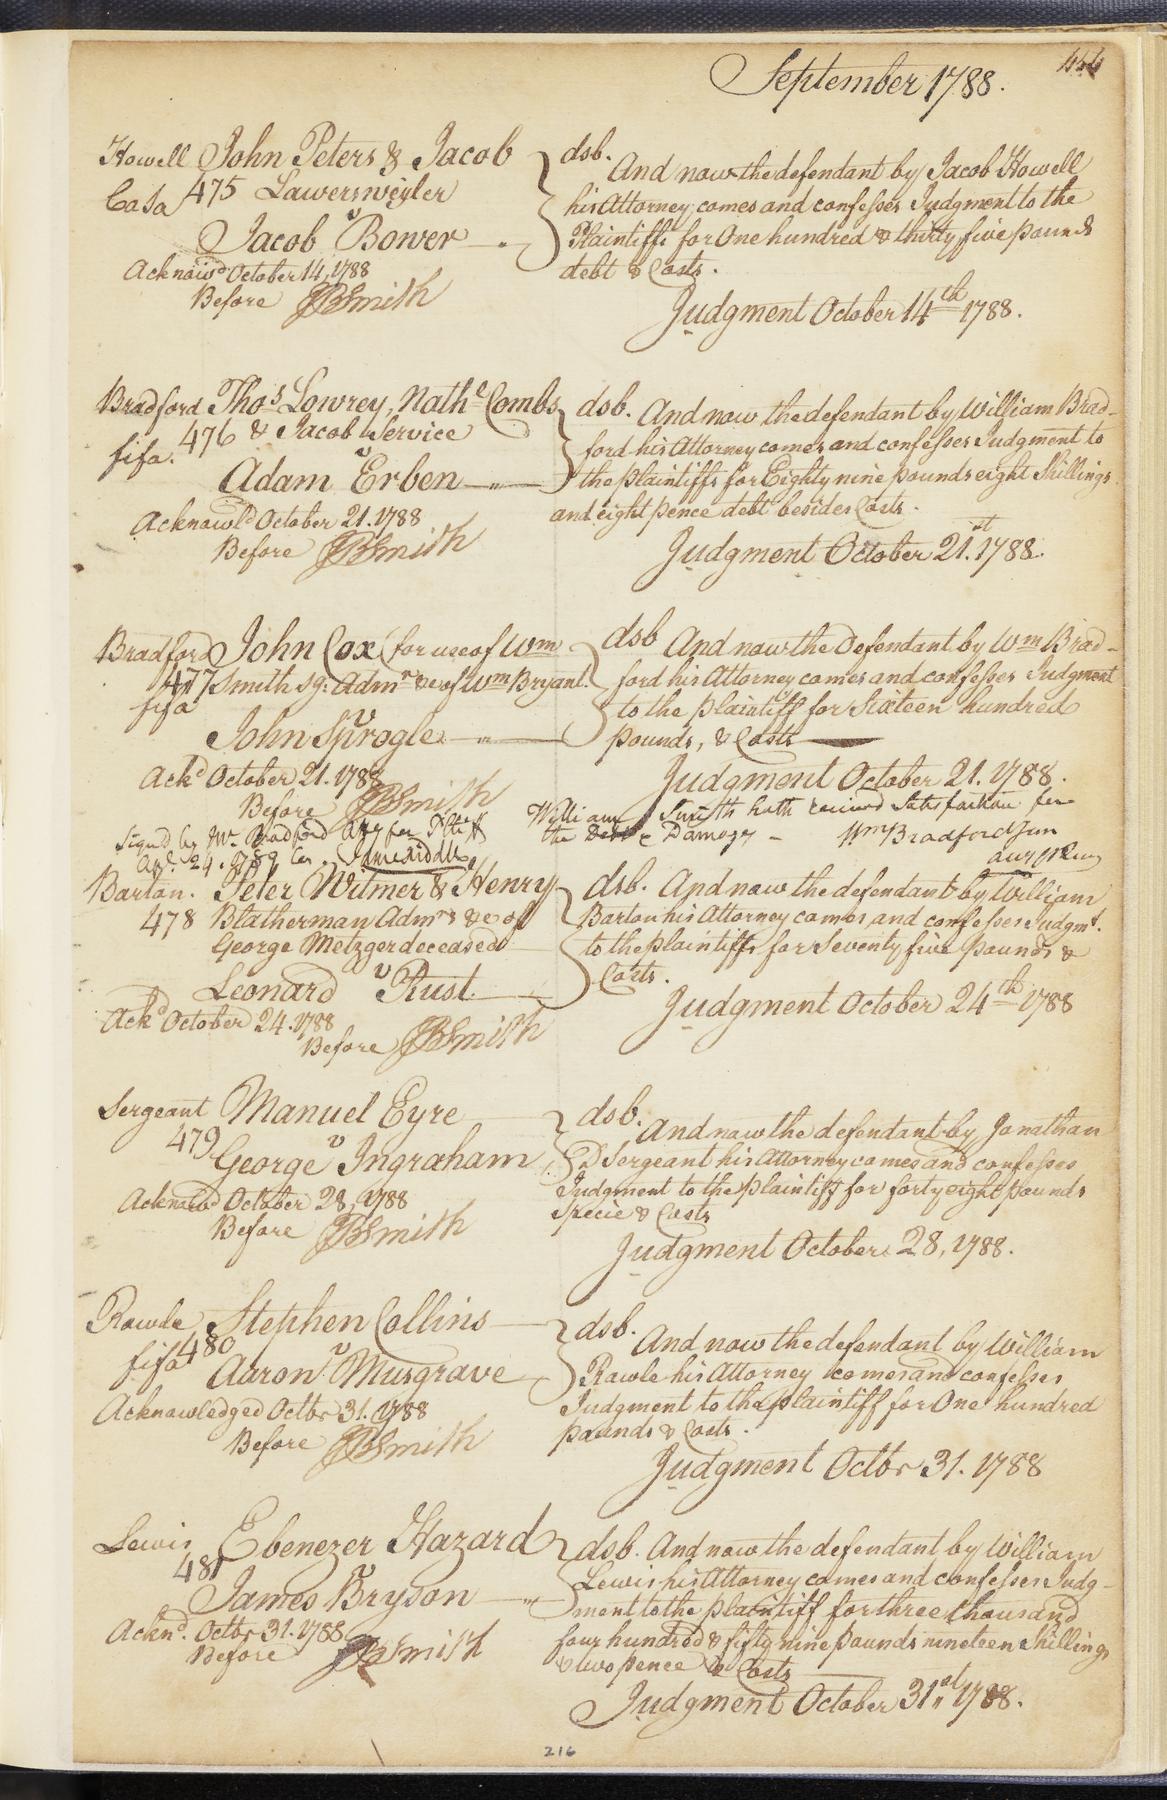 September 1788.
Howell John Peters & Jacob
CaSa 475 Lawerswyler
v
Jacob Bower
Acknow'd October 14, 1788
Before JBSmith
dsb.
And now the defendant by Jacob Howell
his Attorney comes and confesses Judgment to the
Plaintiffs for One hundred & thirty five pounds
debt & Costs.
Judgment October 14th 1788.
Bradford Thos Lowrey, Nathl Combs
476 & Jacob Service
fifa. v
Adam Erben
Acknowl'd October 21. 1788
Before JBSmith
dsb. And now the defendant by William Brad-
ford his Attorney comes and confesses Judgment to
the plaintiffs for Eighty nine pounds eight Shillings
and eight pence debt besides Costs.
Judgment October 21st. 1788.
Bradford John Cox (for use of Wm
477 Smith Admr &c of Wm Bryant.
fifa v
John Sprogle
Ackd October 21. 1788
Before JBSmith
dsb And now the Defendant by Wm Brad-
ford his Attorney comes and confesses Judgment
to the plaintiff for Sixteen hundred
pounds, & Costs
Judgment October 21. 1788.
William Smith hath received Satisfaction for
the Debt & Damages - Wm Bradford Jun
Signed by Mr. Bradford Atty for Pltiff
Barton. Peter Witmer & Henry
478 Blatherman Admrs &c of
George Metzger deceased
v
Leonard Rust
Ackd October 24. 1788
Before JBSmith
dsb. And now the defendant by William
Barton his Attorney comes and confesses Judgmt.
to the plaintiffs for Seventy five pounds &
Costs.
Judgment October 24th 1788
Sergeant Manuel Eyre
479 v
George Ingraham
Acknowd October 28, 1788
Before JBSmith
dsb.
And now the defendant by Jonathan
D Sergeant his Attorney comes and confesses
Judgment to the plaintiff for forty eight pounds
Specie & Costs
Judgment October 28, 1788.
Rawle Stephen Collins
480 v
fifa Aaron Musgrave
Acknowledged Octbr 31. 1788
Before JBSmith
dsb.
And now the defendant by William
Rawle his Attorney comes and confesses
Judgment to the plaintiff for One hundred
pounds & Costs.
Judgment Octbr 31. 1788
Lewis Ebenezer Hazard
481 v
James Bryson
Acknd. Octbr 31. 1788
Before JBSmith
dsb. And now the defendant by William
Lewis his Attorney comes and confesses Judg-
ment to the plaintiff for three thousand
four hundred & fifty nine pounds nineteen Shillings
& two pence & Costs
Judgment October 31st 1788.
216